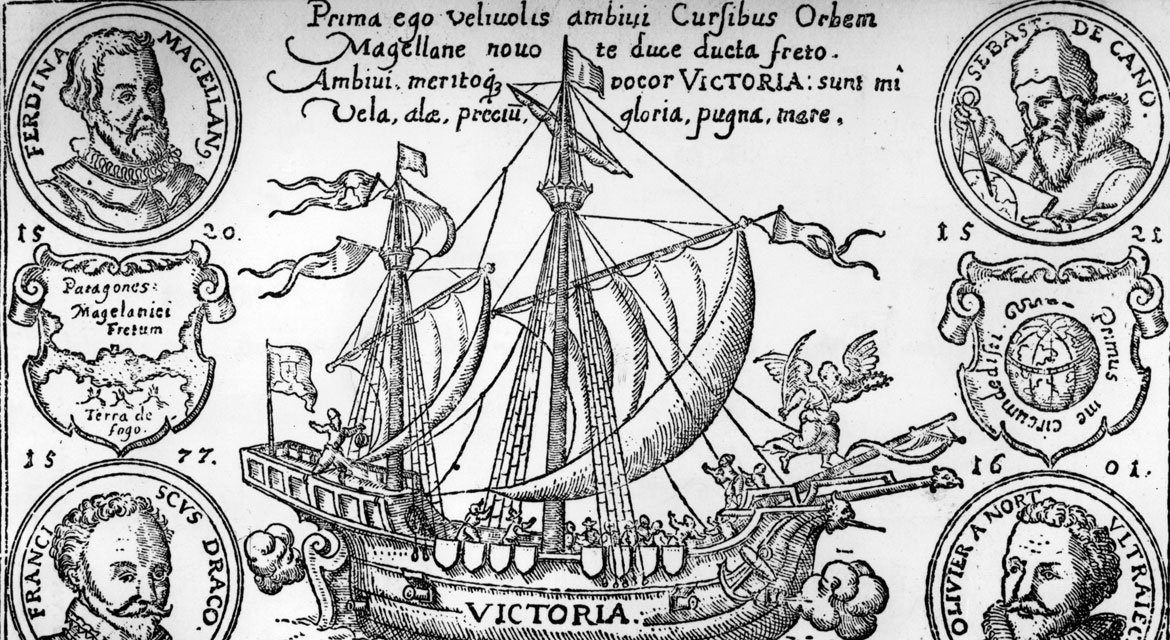 Prima ego veliuolis ambiui Curſibus Orbem
Magellane nouo te duce ducta freto.
Ambiui, meritoq́ꝫ vocor VICTORIA: sunt mî
Vela, alæ, preciũ, gloria, pugna, mare.
FERDINA MAGELLAN,
SEBAST. DE CANO.
15 20.
15 21
Patagones:
Magelanici
Fretum
Terra de
fogo.
Primus me circumdediſti
15 77.
16 01.
FRANCISCVS DRACO.
OLIVIER A NORT VLTRAIEC
VICTORIA.